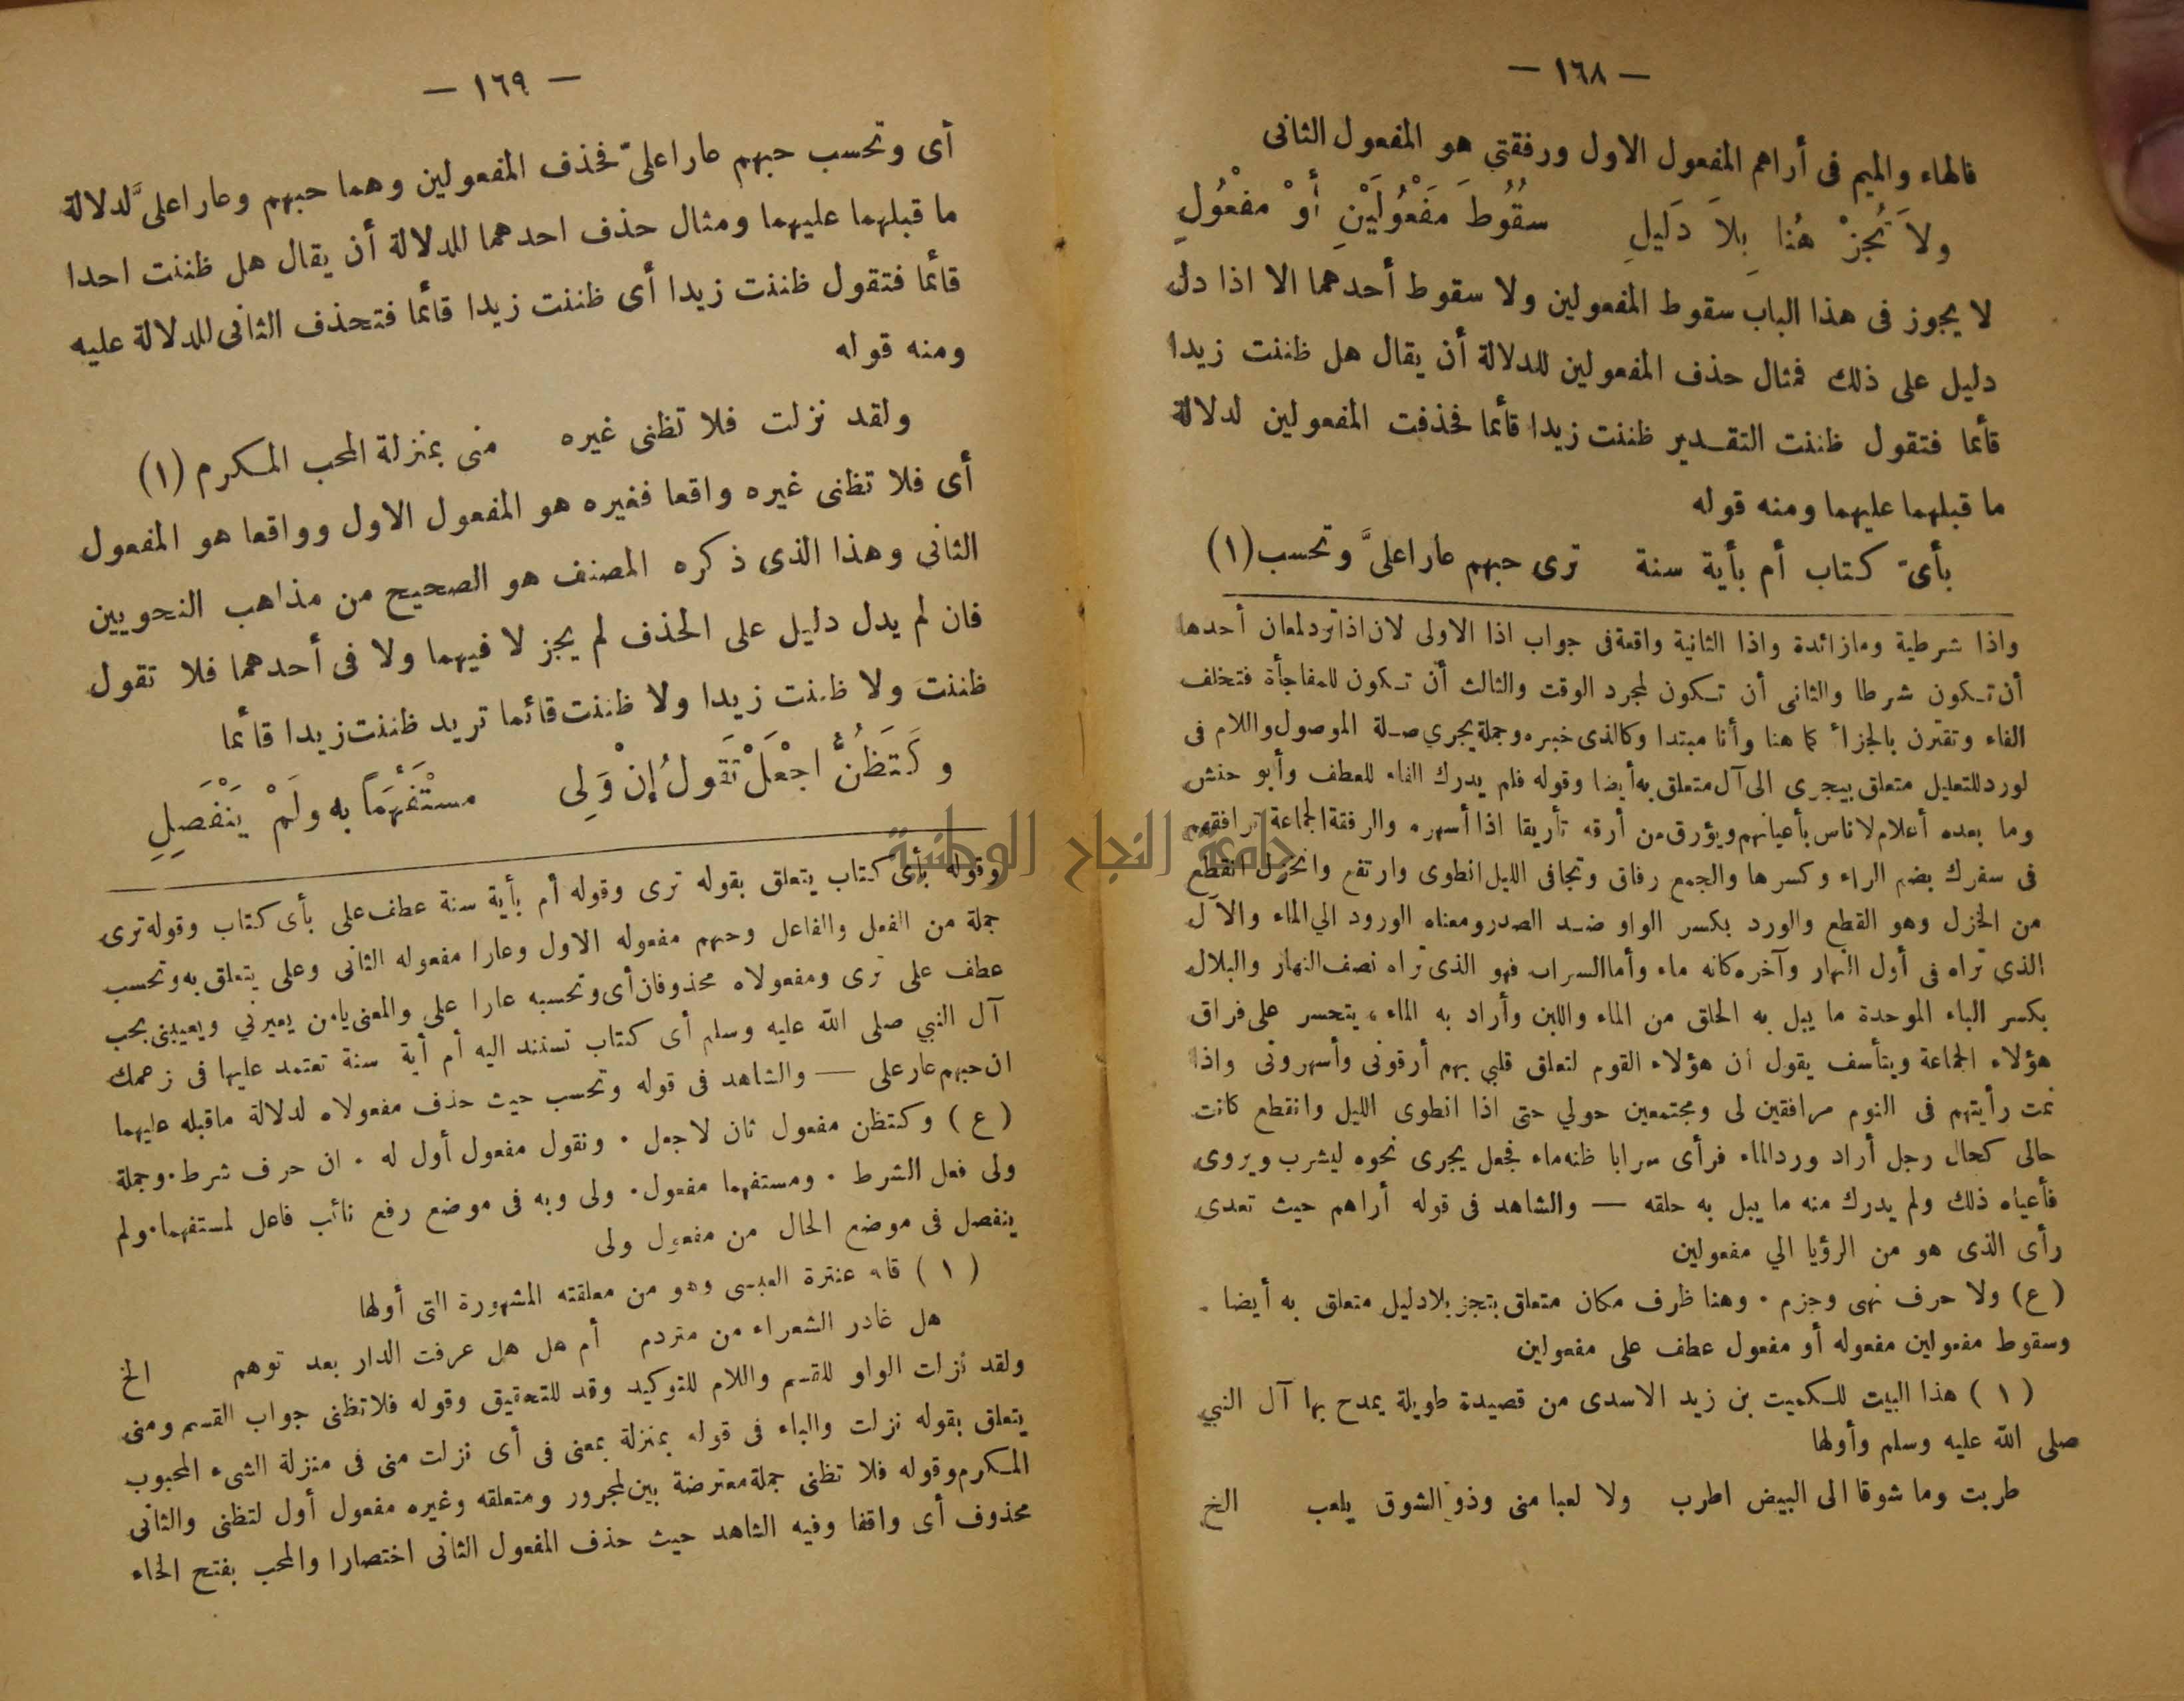 — ١٦٨ —
فالهاء والميم فى أراهم المفعول الاول ورفقتي هو المفعول الثانى
ولاَ تُجِزْ هُنا بِلاَ دَليلِ سقُوطَ مَفْعُولَيْنِ أَوْ مفْعُولِ
لا يجوز فى هذا الباب سقوط المفعولين ولا سقوط أحدهما الا اذا دل
دليل على ذلك فمثال حذف المفعولين للدلالة أن يقال هل ظننت زيدا
قأئما فتقول ظننت التقدير ظننت زيدا قأئما فحذفت المفعولين لدلالة
ما قبلهما عليهما ومنه قوله
بأىّ كتاب أم بأية سنة ترى حبهم عارا علىَّ وتحسب (١)
واذا شرطية وما زائدة واذا الثانية واقعة فى جواب اذا الاولى لان اذا ترد لمعان أحدها
أن تكون شرطا والثانى أن تكون لمجرد الوقت والثالث أن تكون للمفاجأة فتخلف
الفاء وتقترن بالجزاء كما هنا وأنا مبتدا وكالذى خبره وجملة يجري صلة الموصول واللام فى
لورد للتعليل متعلق بيجرى الى آل متعلق به أيضا وقوله فلم يدرك الفاء للعطف وأبو حنش
وما بعده أعلام لاناس بأعيانهم ويؤرق من أرقه تأريقا اذا أسهره والرفقة الجماعة ترافقهم
فى سفرك بضم الراء وكسرها والجمع رفاق وتجافى الليل انطوى وارتفع وانخزل انقطع
من الخزل وهو القطع والورد بكسر الواو ضد الصدر ومعناه الورود الي الماء والآل
الذى تراه فى أول النهار وآخره كانه ماء وأما السراب فهو الذى تراه نصف النهار والبلال
بكسر الباء الموحدة ما يبل به الحلق من الماء واللبن وأراد به الماء ، يتحسر على فراق
هؤلاء الجماعة ويتأسف يقول ان هؤلاء القوم لتعلق قلبي بهم أرقونى وأسهرونى واذا
نمت رأيتهم فى النوم مرافقين لى ومجتمعين حولي حتى اذا انطوى الليل وانقطع كانت
حالى كحال رجل أراد ورد الماء فرأى سرابا ظنه ماء فجعل يجرى نحوه ليشرب ويروى
فأعياه ذلك ولم يدرك منه ما يبل به حلقه — والشاهد فى قوله أراهم حيث تعدى
رأى الذى هو من الرؤيا الي مفعولين
(ع) ولا حرف نهى وجزم ٠ وهنا ظرف مكان متعلق بتجز بلا دليل متعلق به أيضا ٠
وسقوط مفعولين مفعوله أو مفعول عطف على مفعولين
(١) هذا البيت للكميت بن زيد الاسدى من قصيدة طويلة يمدح بها آل النبي
صلى الله عليه وسلم وأولها
طربت وما شوقا الى البيض اطرب ولا لعبا منى وذو الشوق يلعب الخ
— ١٦٩ —
أى وتحسب حبهم عارا علىّ فحذف المفعولين وهما حبهم وعارا علىَّ لدلالة
ما قبلهما عليهما ومثال حذف احدهما للدلالة أن يقال هل ظننت احدا
قأئما فتقول ظننت زيدا أى ظننت زيدا قأئما فتحذف الثانى للدلالة عليه
ومنه قوله
ولقد نزلت فلا تظنى غيره منى بمنزلة المحب المكرم (١)
أى فلا تظنى غيره واقعا فغيره هو المفعول الاول وواقعا هو المفعول
الثانى وهذا الذى ذكره المصنف هو الصحيح من مذاهب النحويين
فان لم يدل دليل على الحذف لم يجز لا فيهما ولا فى أحدهما فلا تقول
ظننت ولا ظننت زيدا ولا ظننت قائما تريد ظننت زيدا قأئما
وكَتَظُنُّ اجْعَلْ تَقُولُ إِنْ وَلِى مستَفْهَماً به ولَمْ يَنْفَصِلِ
وقوله بأى كتاب يتعلق بقوله ترى وقوله أم بأية سنة عطف على بأى كتاب وقوله ترى
جملة من الفعل والفاعل وحبهم مفعوله الاول وعارا مفعوله الثانى وعلى يتعلق به وتحسب
عطف على ترى ومفعولاه محذوفان أى وتحسبه عارا على والمعنى يا من يعيرني ويعيبنى بحب
آل النبي صلى الله عليه وسلم أى كتاب تستند اليه أم أية سنة تعتمد عليها فى زعمك
ان حبهم عار على — والشاهد فى قوله وتحسب حيث حذف مفعولاه لدلالة ماقبله عليهما
(ع) وكتظن مفعول ثان لاجعل ٠ وتقول مفعول أول له ٠ ان حرف شرط ٠ وجملة
ولى فعل الشرط ٠ ومستفهما مفعول ٠ ولى وبه فى موضع رفع نائب فاعل لمستفهما ٠ ولم
ينفصل فى موضع الحال من مفعول ولى
(١) قاله عنترة العبسى وهو من معلقته المشهورة التى أولها
هل غادر الشعراء من متردم أم هل هل عرفت الدار بعد توهم الخ
ولقد نزلت الواو للقسم واللام للتوكيد وقد للتحقيق وقوله فلا تظنى جواب القسم ومنى
يتعلق بقوله نزلت والباء فى قوله بمنزلة بمعنى فى أى نزلت منى فى منزلة الشىء المحبوب
المكرم وقوله فلا تظنى جملة معترضة بين لمجرور ومتعلقه وغيره مفعول أول لتظنى والثانى
محذوف أى واقفا وفيه الشاهد حيث حذف المفعول الثانى اختصارا والمحب بفتح الحاء
جامعة النجاح الوطنية